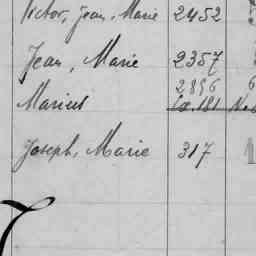 Victor, Jean, Marie 2452
Jean, Marie 2357
2896
Marius
Joseph, Marie 317